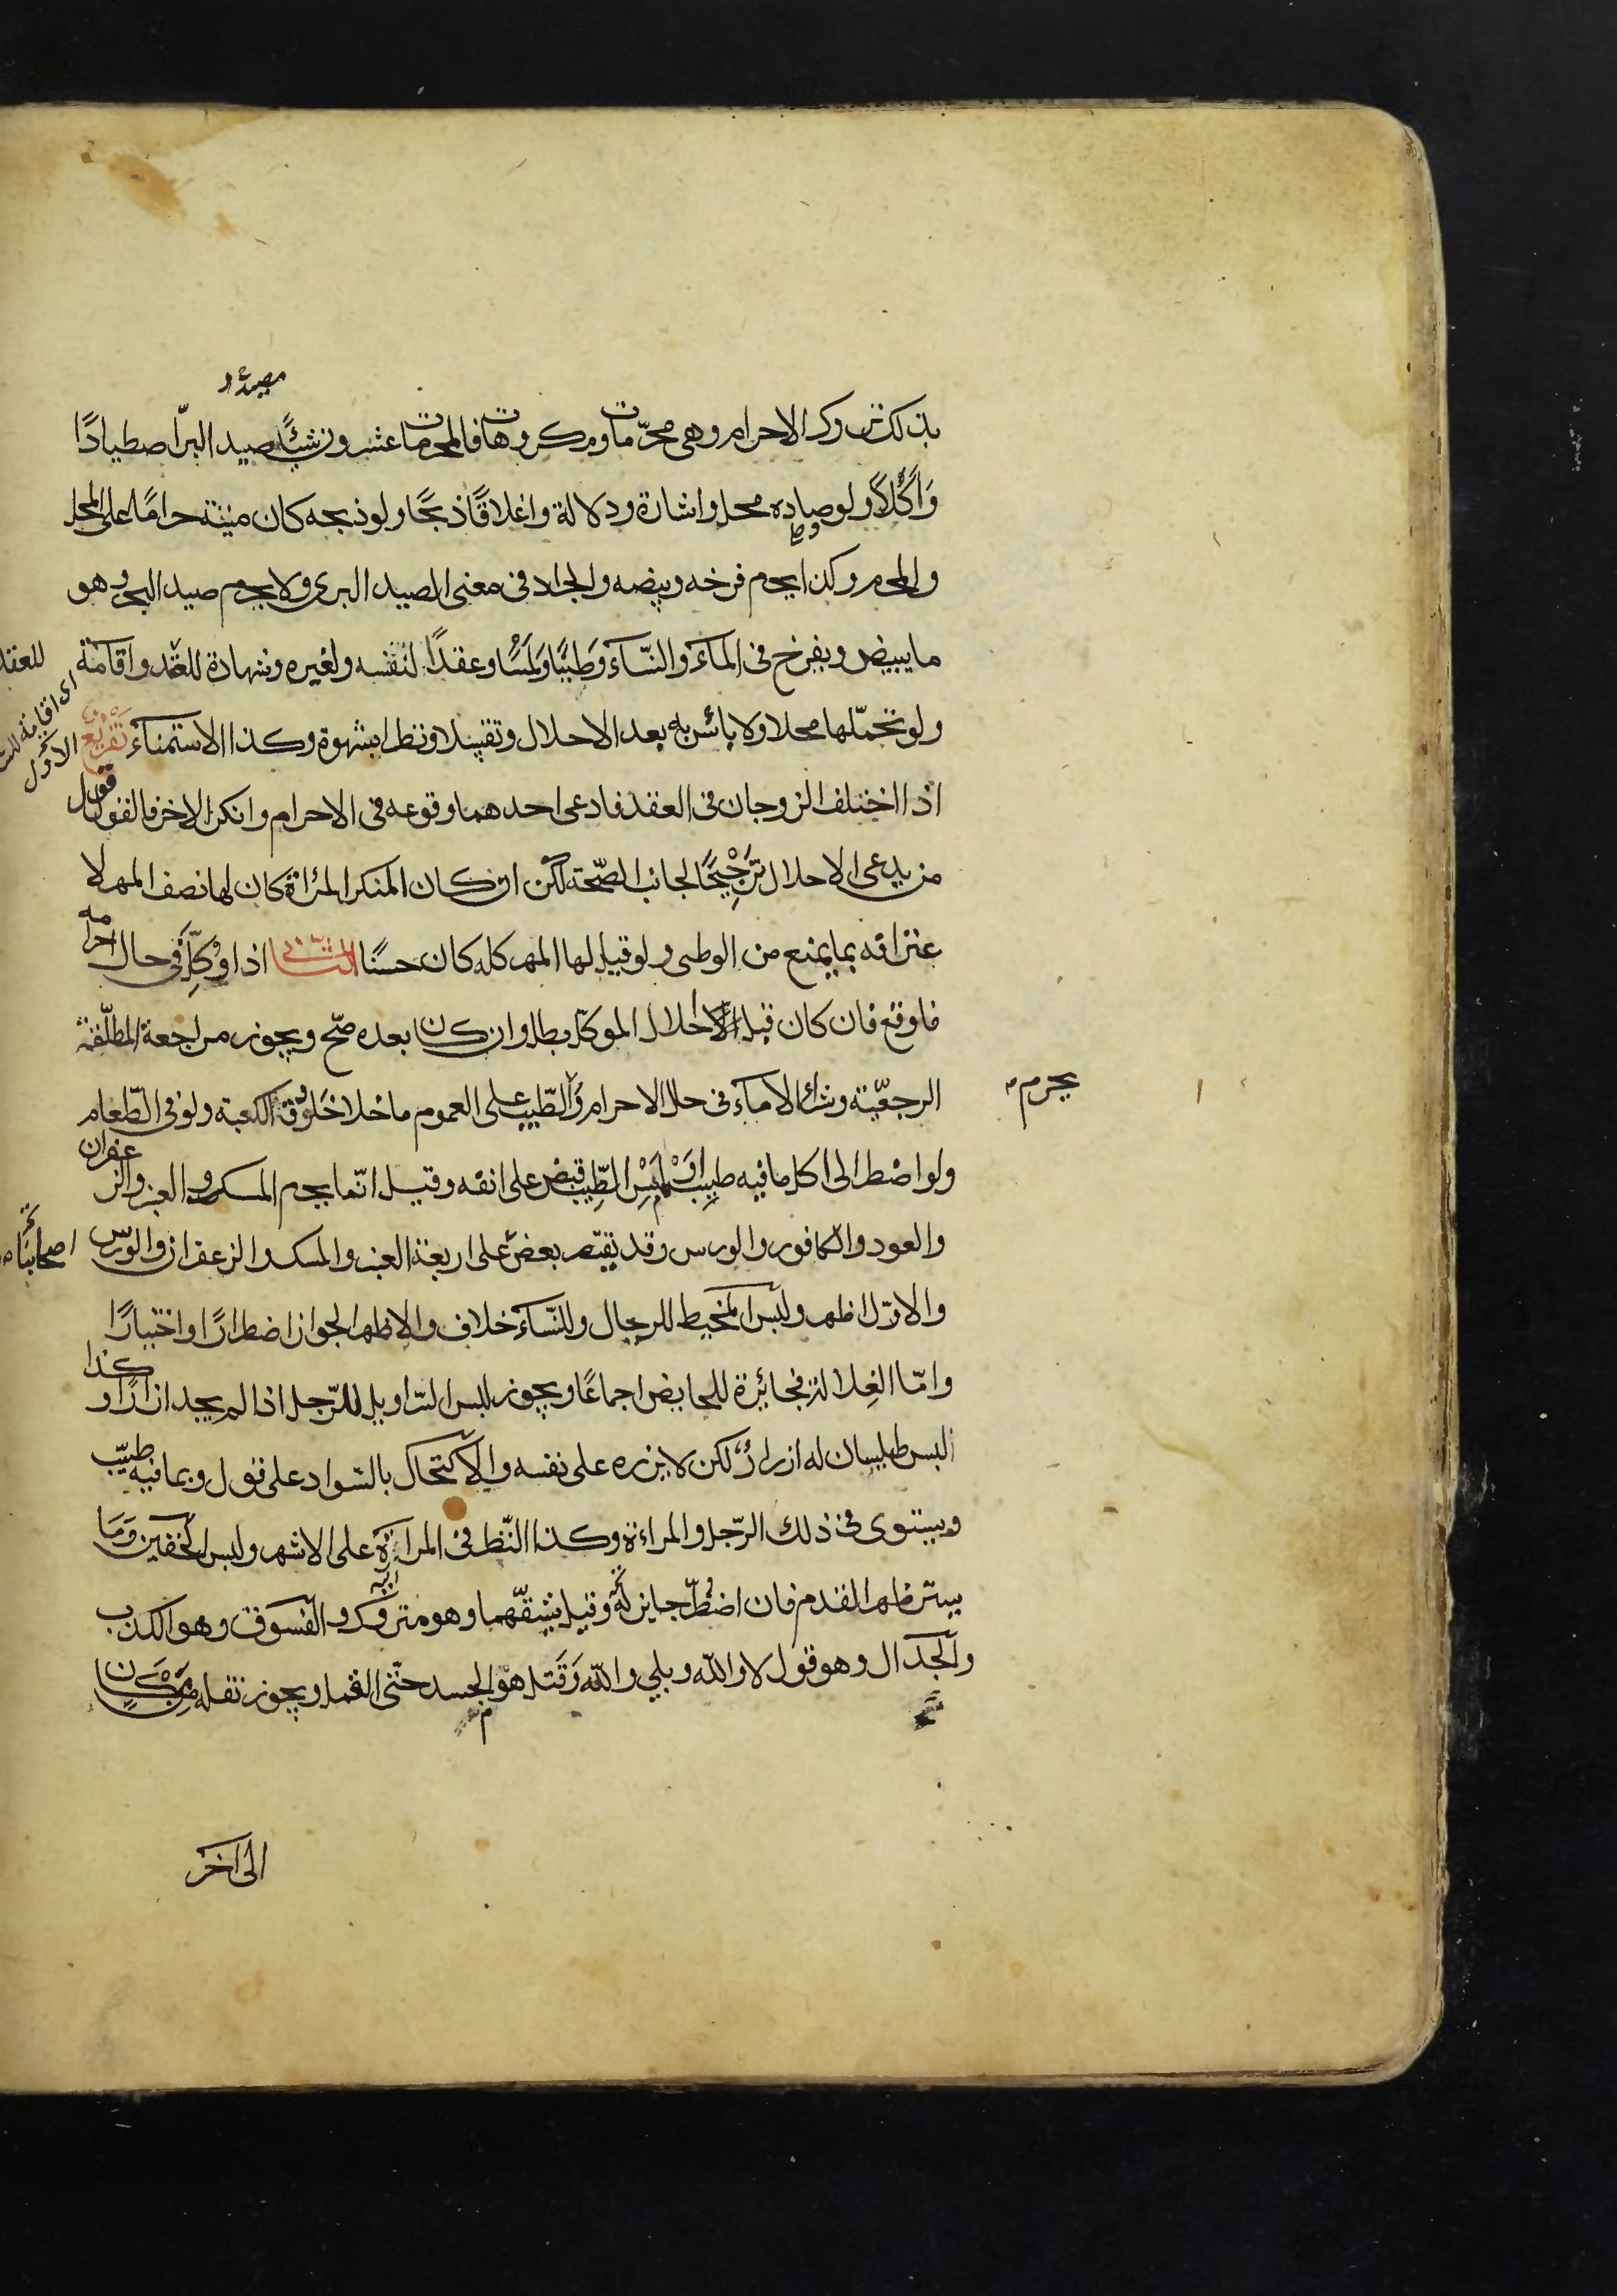 مصيده
بذلك تروك الاحرام وهى محرّمات ومكروهات فالمحرمات عشرون شيئًا صيد البرّ اصطيادًا
وَاَكْلاً ولو صاده محل واشارة ودلالة واغلاقًا وذبحًا ولو ذبحه كان ميتة حرامًا على المحل
والمحرم وكذا يحرم فرخه وبيضه والجراد فى معنى الصيد البرى ولا يحرم صيد البحر وهو
ما يبيض ويفرخ فى المآء والنّسآء وَطيًا وَلَمْسًا وعقدًا لنفسه ولغيره وشهادة للعقد واقامة
للعقد
ولو تحمّلها محلا ولا باس به بعد الاحلال وتقبيلا ونظرا بشهوة وكذا الاستمنآء تَفْريع الاول
اى اقامة
اذا اختلف الزوجان فى العقد فادعى احدهما وقوعه فى الاحرام وانكر الاخر فالقول قول
من يدعى الاحلال تَرْجِيحًا لجانب الصّحة لكن ان كان المنكر المرأة كان لها نصف المهر لا
عترافه بما يمنع من الوطى ولو قيل لها المهر كله كان حسنًا الثانى اذا وُكِّلَ فى حال احرامه
فاوقع فان كان قبل احلال الموكل بطل وان كان بعده صّح ويجوز مراجعة المطلّقة
الرجعيّة وشراء الامآء فى حال الاحرام وَالطّيب على العموم ما خلا خَلوُق الكعبة ولو فى الطّعام
يحرم م
ولو اضطر الى اكل ما فيه طيب اوْ لَمْسِ الطِّيب قبض على انفه وقيل انّما يحرم المسك والعنبر والزعفران
والعود والكافور والورس وقد يقتصر بعضٌ على اربعة العنبر والمسك والزعفران والورس
اصحابنا
والاوّل اظهر ولُبس المخيط للرجال وللنّسآء خلاف والاظهر الجواز اضطرارًا واختيارًا
وامّا الغِلالة فجائزة للحايض اجماعًا ويجوز لبس السّراويل للرّجل اذا لم يجد ازارًا وكذا
لبس طيلسان له ازرارٌ لكن لا يزره على نفسه والاكتحال بالسّواد على قول وبما فيه طيبّ
ويستوى فى ذلك الرّجل والمراءة وكذا النّظر فى المراة على الاشهر ولبس الخفين وَمَا
يستر ظهر القدم فان اضطرّ جاز له وقيل يشقّهما وهو متروك والفسوق وهو الكذب
والجدال وهو قول لا والله وبلى والله وَقَتل هوّام الجسد حتّى القمل ويجوز نقله مِنْ مَكَانٍ
الى آخر